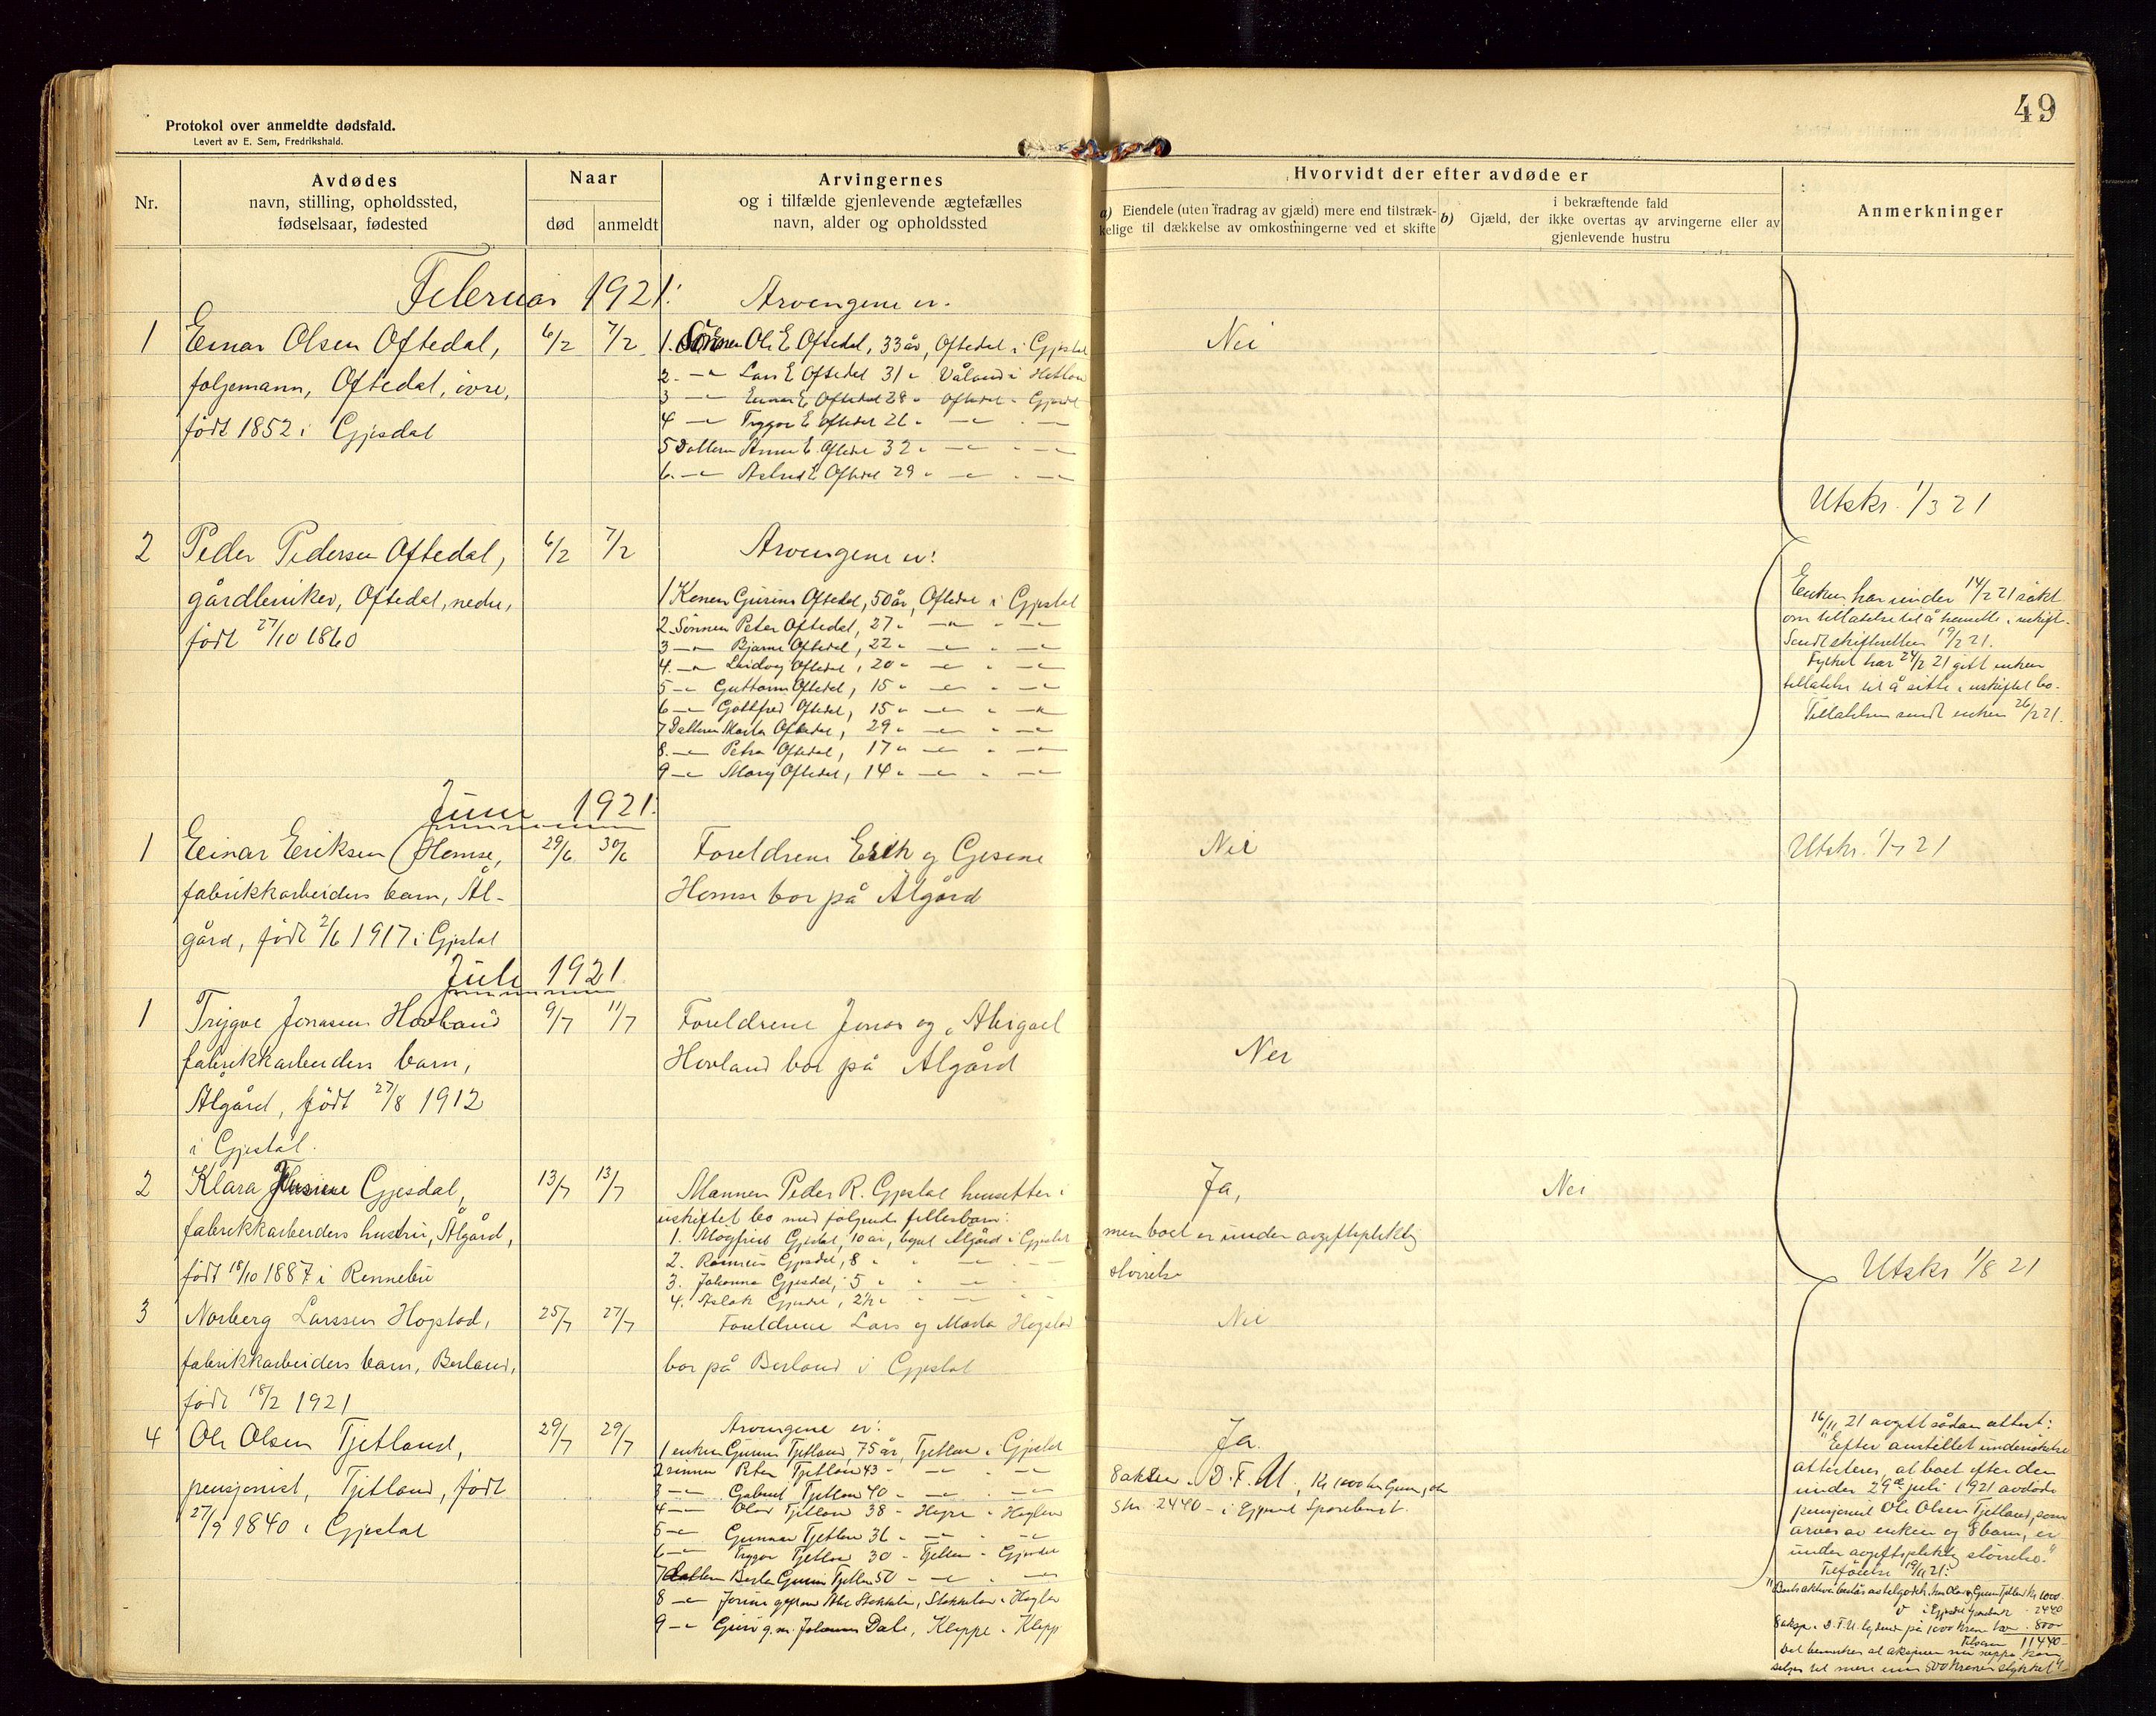 49
Protokol over anmeldte dødsfald.
Levert av E. Sem, Fredrikshald.
Nr.
Avdødes
navn, stilling, opholdssted,
fødselsaar, fødested
Naar
død
anmeldt
Arvingernes
og i tilfælde gjenlevende ægtefælles
navn, alder og opholdssted
Hvorvidt der efter avdøde er
a) Eiendele (uten fradrag av gjæld) mere end tilstræk-
kelige til dækkelse av omkostningerne ved et skifte
i bekræftende fald
b) Gjæld, der ikke overtas av arvingerne eller av
gjenlevende hustru
Anmerkninger
Februar 1921.
1 Einar Olsen Oftedal, 6/2 7/2
folgemann, Oftedal, ivre,
født 1852 i Gjesdal
Arvingene er:
1. Sønnen Ole E Oftedal, 33 år, Oftedal i Gjesdal
2. -"- Lars E Oftedal 31 " Våland i Hetland
3 -"- Einar E Oftedal 28 " Oftedal " Gjesdal
4 -"- Trygve E Oftedal 26 " -"- " -"-
5 Datteren Anna E. Oftedal 32 " -"- " -"-
6. -"- Astrid E Oftedal 29 " -"- " -"-
Nei
Utskr. 1/3 21
2 Peder Pedersen Oftedal, 6/2 7/2
gårdbruker, Oftedal, nedre,
født 27/10 1860
Arvingene er:
1 Konen Gurine Oftedal, 50 år, Oftedal i Gjesdal
2 Sønnen Peter Oftedal, 27 " -"- " -"-
3 -"- Bjarne Oftedal, 22 " -"- " -"-
4. -"- Ludvig Oftedal, 20 " -"- " -"-
5 -"- Guttorm Oftedal, 15 " -"- " -"-
6 -"- Gottfred Oftedal, 15 " -"- " -"-
7 Datteren Marta Oftedal, 29 " -"- " -"-
8. -"- Petra Oftedal, 17 " -"- " -"-
9 -"- Mary Oftedal, 14 " -"- " -"-
Enken har under 14/2 21 søkt
om tillatelse til å hensitte i uskift.
Sendt skifteretten 19/2 21.
Fylket har 24/2 21 gitt enken
tillatelse til å sitte i uskiftet bo.
Tillatelsen sendt enken 26/2 21.
Juni 1921.
1 Einar Eriksen Homse, 29/6 30/6
fabrikkarbeiders barn, Ål-
gård, født 2/6 1917 i Gjesdal
Foreldrene Erik og Gesine
Homse bor på Ålgård
Nei
Utskr. 1/7 21
Juli 1921
1 Trygve Jonasen Hovland 9/7 11/7
fabrikkarbeiders barn,
Ålgård, født 27/8 1912
i Gjesdal.
Foreldrene Jonas og Abigael
Hovland bor på Ålgård
Nei
2 Klara Gjesdal, 13/7 13/7
fabrikkarbeiders hustru, Ålgård,
født 18/10 1887 i Rennebu
Mannen Peder R. Gjesdal hensetter i
uskiftet bo med følgende fellesbarn:
1. Gjesdal, 10 år, Ålgård i Gjesdal
2. Rasmus Gjesdal, 8 " " -"- " -"-
3. Johanna Gjesdal, 5 " " -"-
4. Aslak Gjesdal, 2½ " " -"- " -
Ja,
men boet er under avgiftspliktig
størrelse
Nei
Utskr 1/8 21
3 Norberg Larssen Hogstad, 25/7 27/7
fabrikkarbeiders barn, Berland,
født 18/2 1921
Foreldrene Lars og Marta Hogstad
bor på Berland i Gjesdal
Nei
4 Ole Olsen Tjetland, 29/7 29/7
pensjonist, Tjetland, født
27/9 1840 i Gjesdal
Arvingene er:
1 enken Gurine Tjetland, 75 år, Tjetland i Gjesdal
2 sønnen Peter Tjetland 43 - -"- " -"-
3 -"- Gabriel Tjetland 40 - -"- " -"-
4 -"- Olav Tjetland 38 - i Høyland
5 -"- Gunnar Tjetland 36 - -"- " -"-
6 -"- Trygve Tjetland 30 - Tjetland - Gjesdal
7 datteren Berta Gurine Tjetland 50 - -"- " -"-
8 -"- Stokkeland i Høyland
9 -"- g.m. Johannes Dale, Kleppe i Klepp
Ja.
8 aksier D. F. U., Kr 1000
2440 - i Gjesdal Sparebank.
16/11 21 avgitt sådan attest:
"Efter anstillet undersøkelse
attesteres, at boet efter den
under 29de juli 1921 avdøde
pensjonist Ole Olsen Tjetland, som
arves av enken og 8 barn, er
under avgiftspliktig størrelse."
Tilføielse 19/11 21:
"Boets aktiva består av Kr 1000.
i Gjesdal Sparebank - 2440
8 aksjer i D.F.U. lydende på 1000 kroner - 8000
Tilsam 11440 -
Det bemerkes at aksjene nu neppe kan
selges til mere enn 500 kroner stykket"